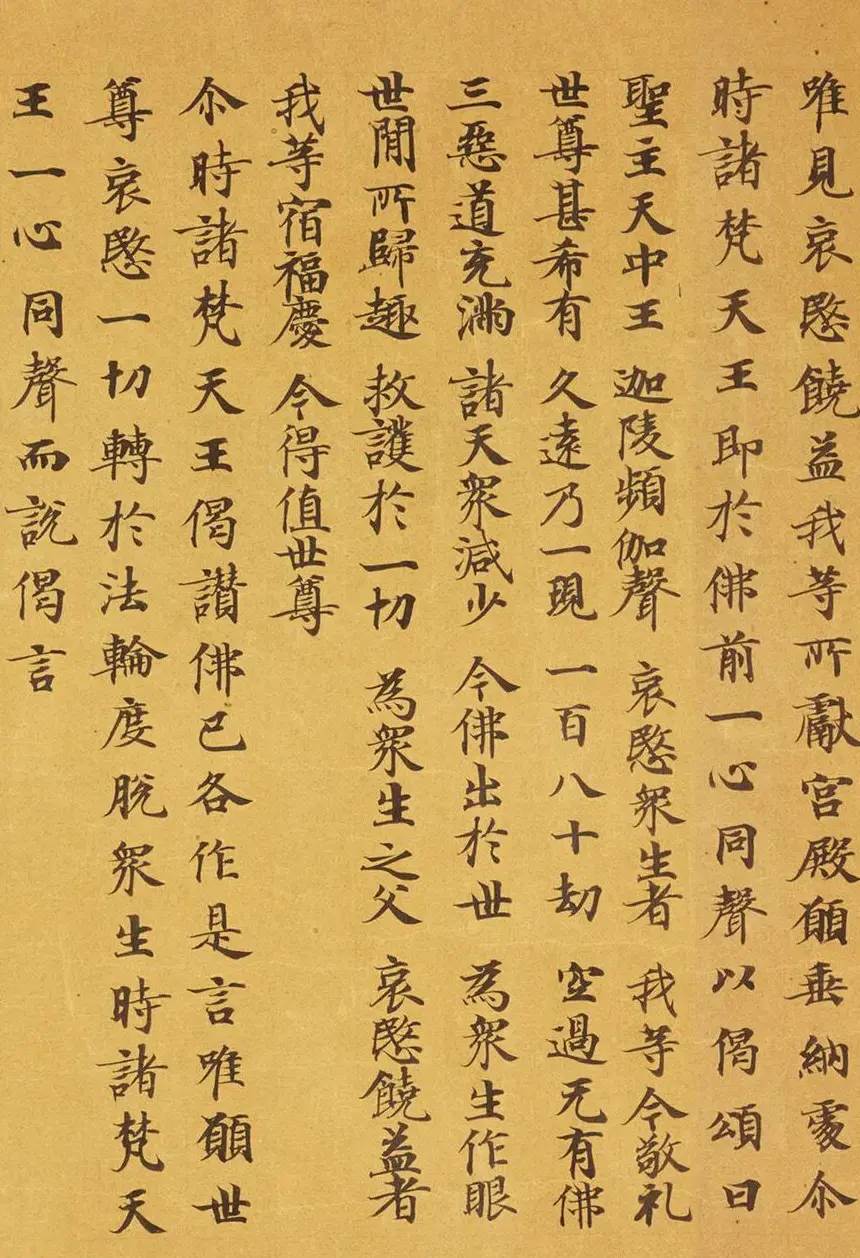 唯見哀愍饒益我等所獻宮殿願垂納處尒
時諸梵天王即於佛前一心同聲以偈頌曰
聖主天中王 迦陵頻伽聲 哀愍衆生者 我等今敬礼
世尊甚希有 久遠乃一現 一百八十劫 空過无有佛
三惡道充滿 諸天衆減少 今佛出於世 為衆生作眼
世間所歸趣 救護於一切 為衆生之父 哀愍饒益者
我等宿福慶 今得值世尊
尒時諸梵天王偈讃佛已各作是言唯願世
尊哀愍一切轉於法輪度脫衆生時諸梵天
王一心同聲而說偈言